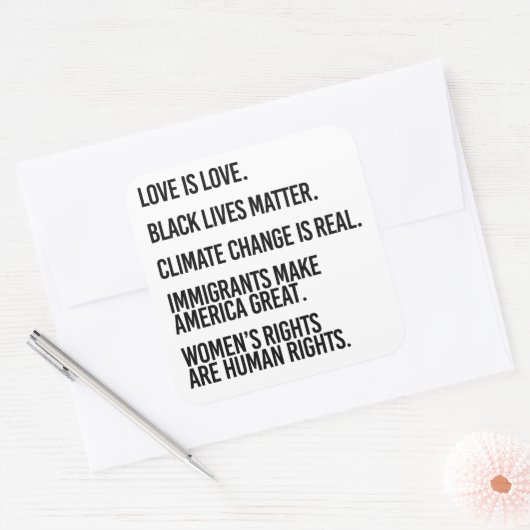 LOVE IS LOVE.
BLACK LIVES MATTER.
CLIMATE CHANGE IS REAL.
IMMIGRANTS MAKE
AMERICA GREAT.
WOMEN'S RIGHTS
ARE HUMAN RIGHTS.